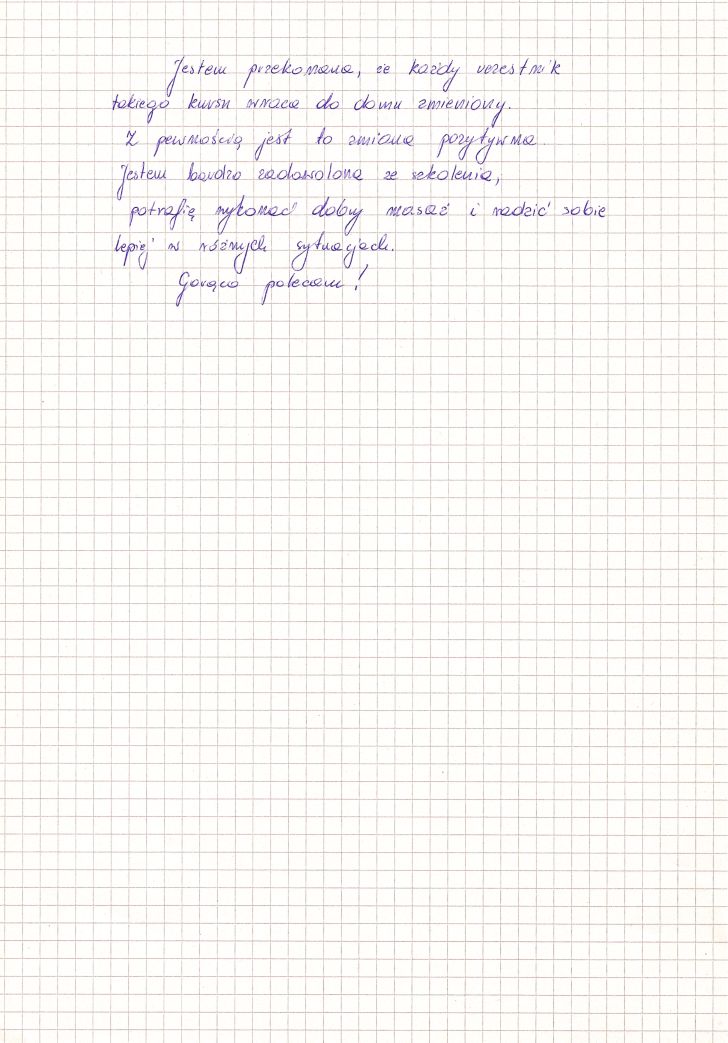 Jestem przekonana, że każdy uczestnik
takiego kursu wraca do domu zmieniony.
Z pewnością jest to zmiana pozytywna.
Jestem bardzo zadowolona ze szkolenia,
potrafię wykonać dobry masaż i radzić sobie
lepiej w różnych sytuacjach.
Gorąco polecam!